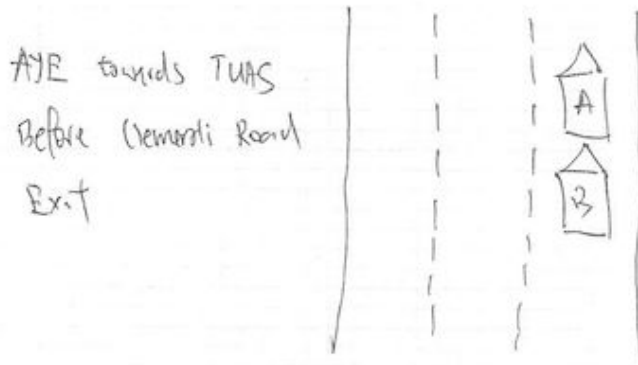 AYE towards TUAS
Before Clementi Road
Exit
A
B